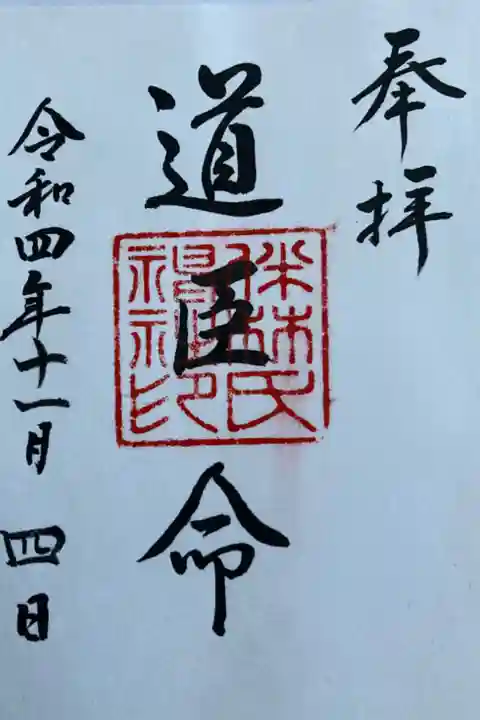 奉拝
道臣命
林氏
印
令和四年十一月 四日